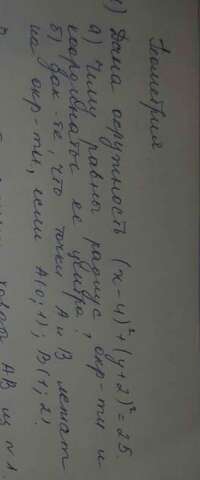 Геометрия
1) Дана окружность (x-4)²+(y+2)²=25.
а) Чему равны радиус окр-ти и
координаты её центра?
б) Док-те, что точки A и B лежат
на окр-ти, если A(0;1); B(1;2).
AB из п1.